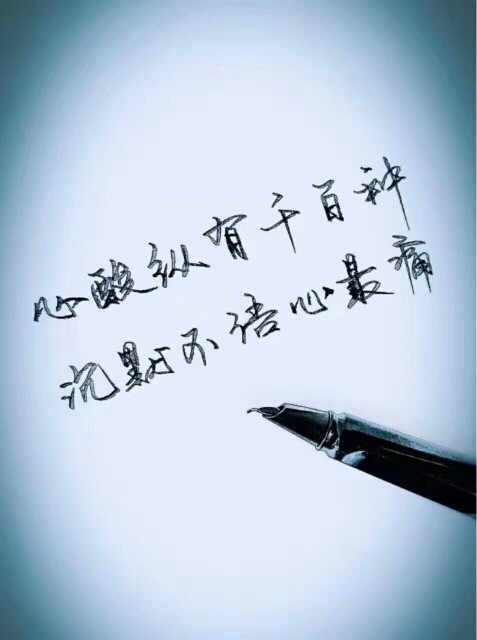 心酸纵有千百种
沉默不语心最痛